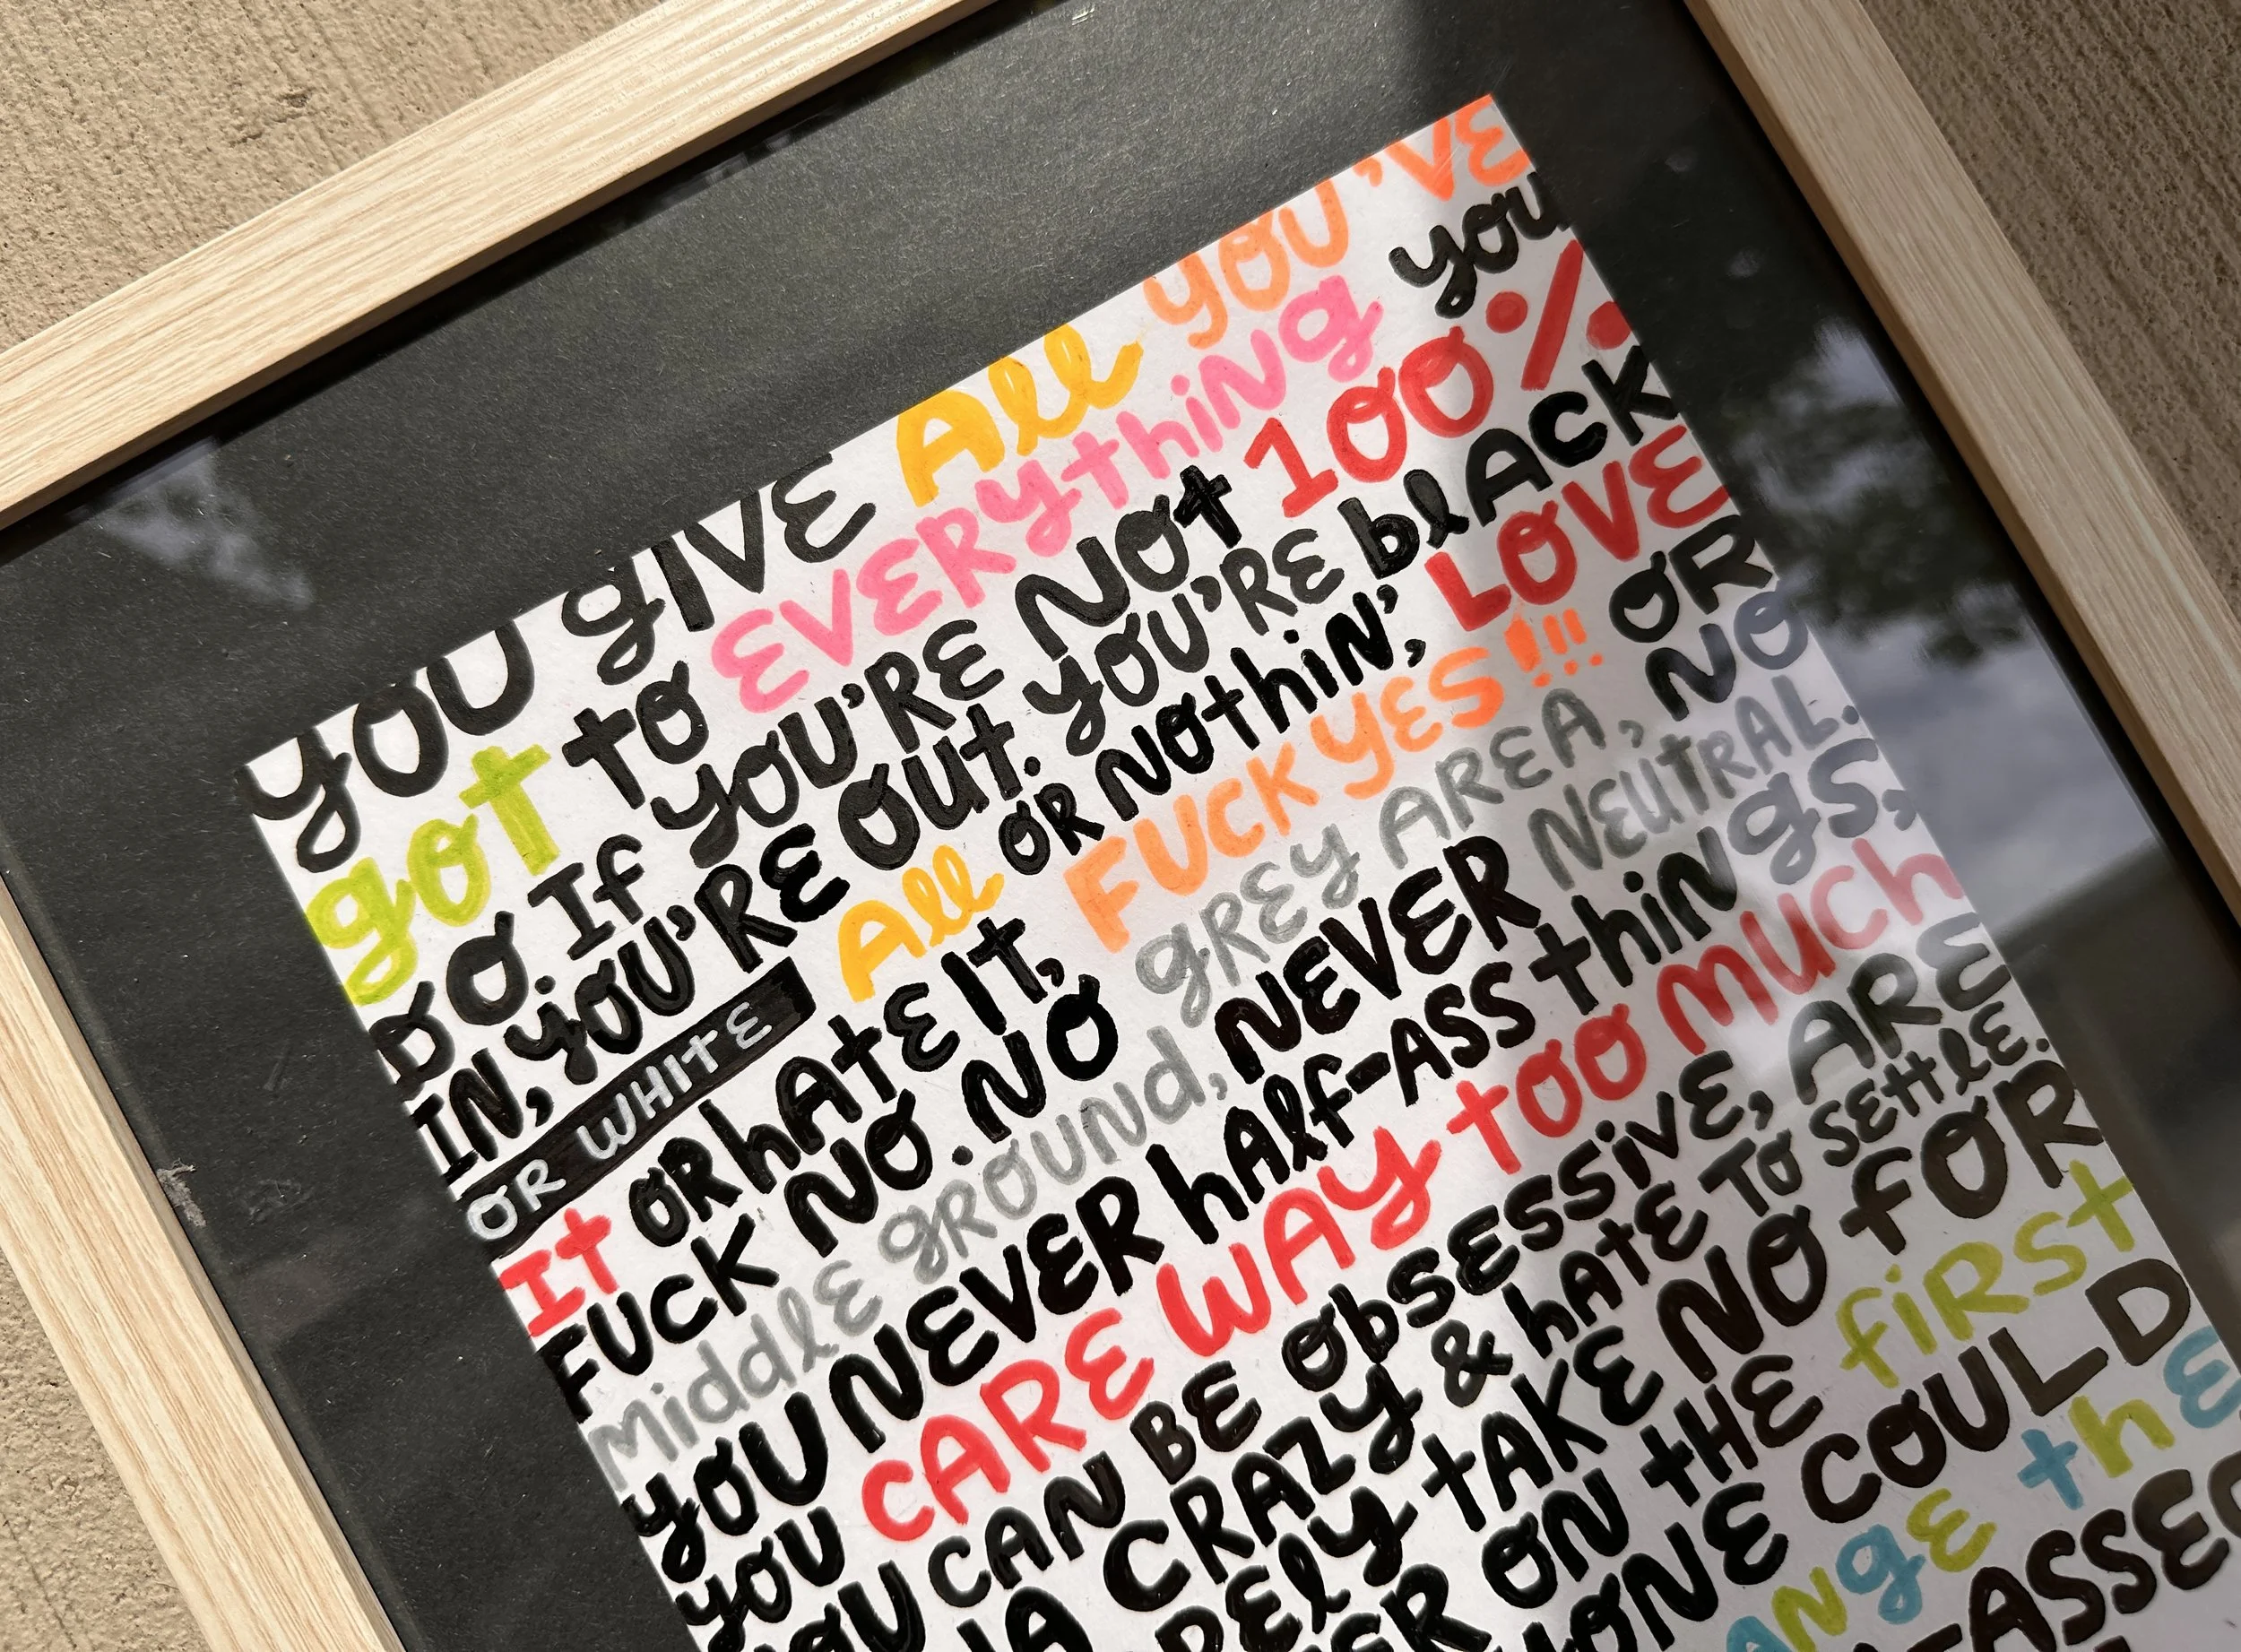 YOU GIVE All YOU'VE
got to EVERYthiNg you
DO. If YOU'RE NOt 100%
IN, YOU'RE OUt. YOU'RE blACK
OR WHITE All OR NOthiN', LOVE
It OR hAtE It, FUCK YES!!! OR
FUCK NO. NO gREY AREA, NO
Middle gROUNd, NEVER NEUtRAL.
YOU NEVER hAlf-ASS thiNgS,
YOU CARE WAY tOO MUCh
YOU CAN BE ObSESSiVE, ARE
CRAZY & hAtE TO SEttlE.
tAKE NO FOR
ON tHE fiRSt
COULD
thE